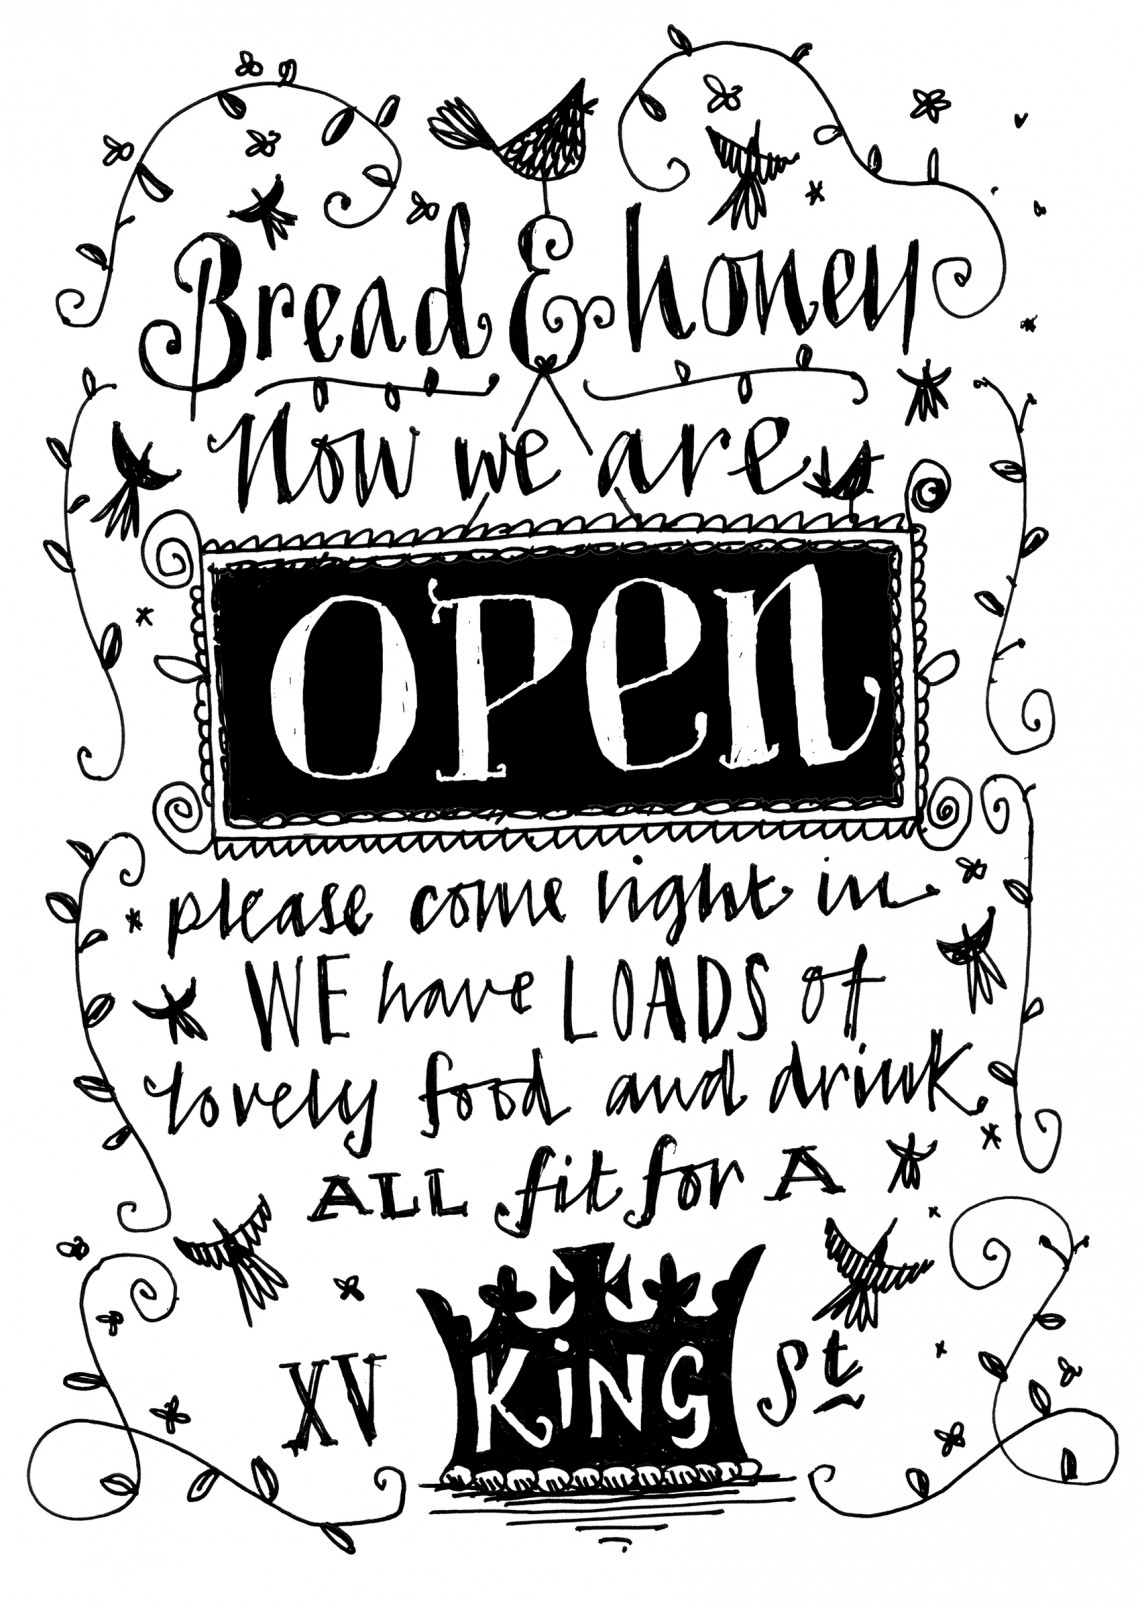 Bread & honey
Now we are
open
please come right in
WE have LOADS of
lovely food and drink
ALL fit for A
XV KiNG St